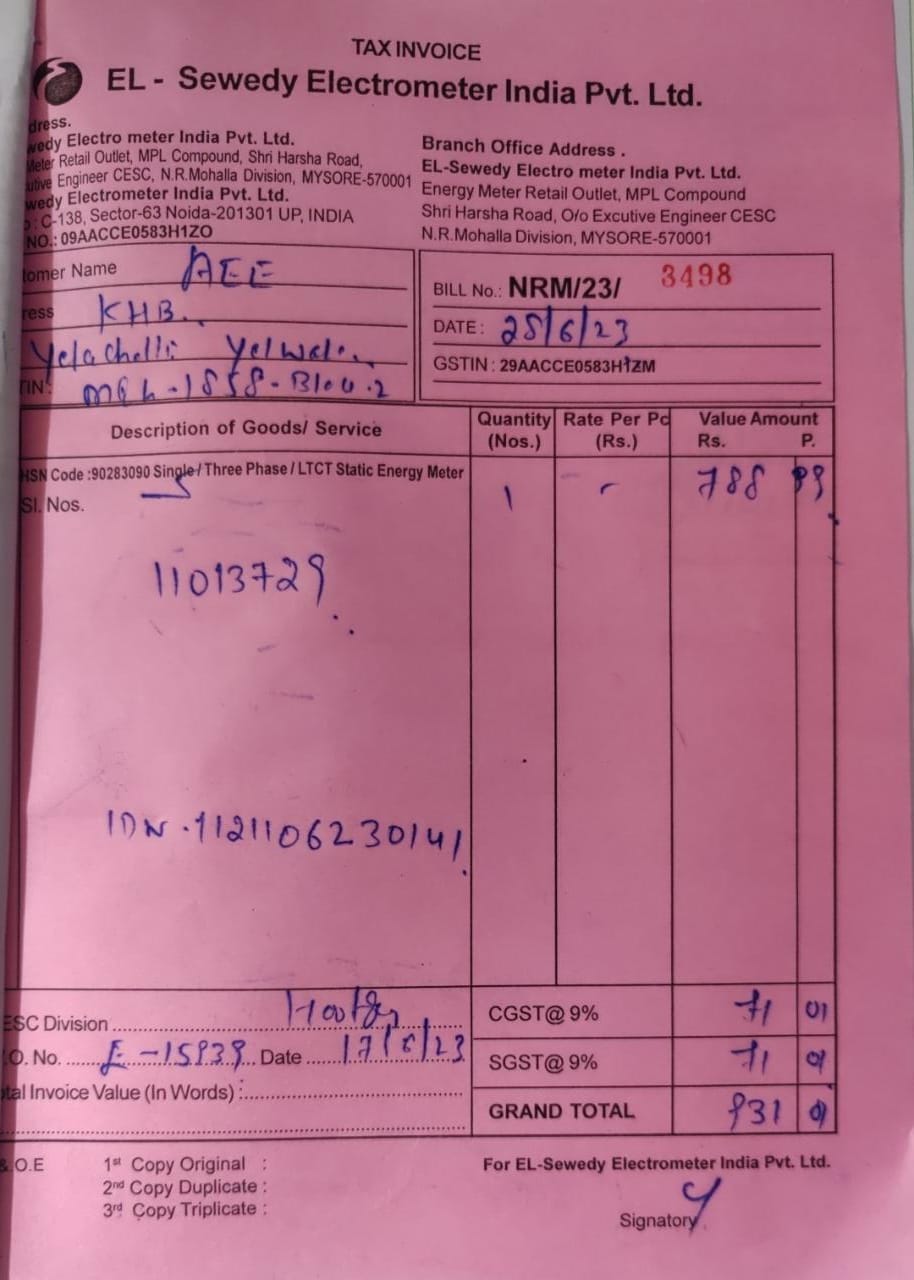 TAX INVOICE
EL - Sewedy Electrometer India Pvt. Ltd.
dress.
wedy Electro meter India Pvt. Ltd.
Meter Retail Outlet, MPL Compound, Shri Harsha Road,
utive Engineer CESC, N.R.Mohalla Division, MYSORE-570001
wedy Electrometer India Pvt. Ltd.
: C-138, Sector-63 Noida-201301 UP, INDIA
NO.: 09AACCE0583H1ZO
Branch Office Address .
EL-Sewedy Electro meter India Pvt. Ltd.
Energy Meter Retail Outlet, MPL Compound
Shri Harsha Road, O/o Excutive Engineer CESC
N.R.Mohalla Division, MYSORE-570001
tomer Name AEE
ress KHB.
Yelachalli Yelwala.
TIN: 1858-Block.2
BILL No.: NRM/23/ 3498
DATE: 25/6/23
GSTIN : 29AACCE0583H1ZM
Description of Goods/ Service Quantity (Nos.) Rate Per Pc (Rs.) Value Amount Rs. P.
HSN Code :90283090 Single / Three Phase / LTCT Static Energy Meter 1 - 788 99
Sl. Nos.
11013729
IDN. 1121106230141
ESC Division
.O. No. E-15939 Date 17/6/23
tal Invoice Value (In Words) :
CGST@ 9% 71 01
SGST@ 9% 71 01
GRAND TOTAL 931 01
&.O.E
1st Copy Original :
2nd Copy Duplicate :
3rd Copy Triplicate :
For EL-Sewedy Electrometer India Pvt. Ltd.
Signatory